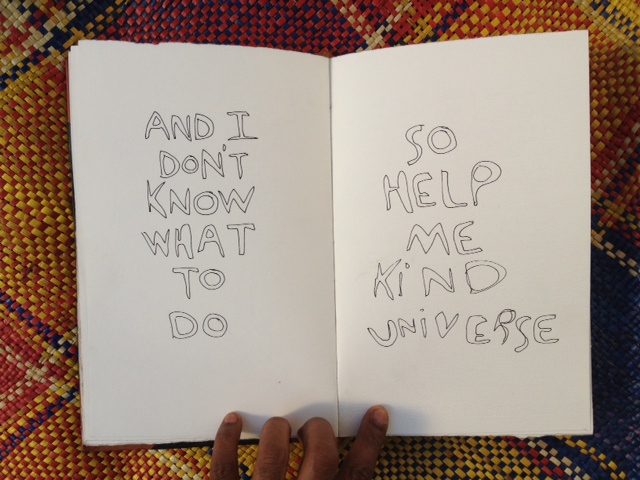 AND I
DON'T
KNOW
WHAT
TO
DO
SO
HELP
ME
KiND
UNiVERSE